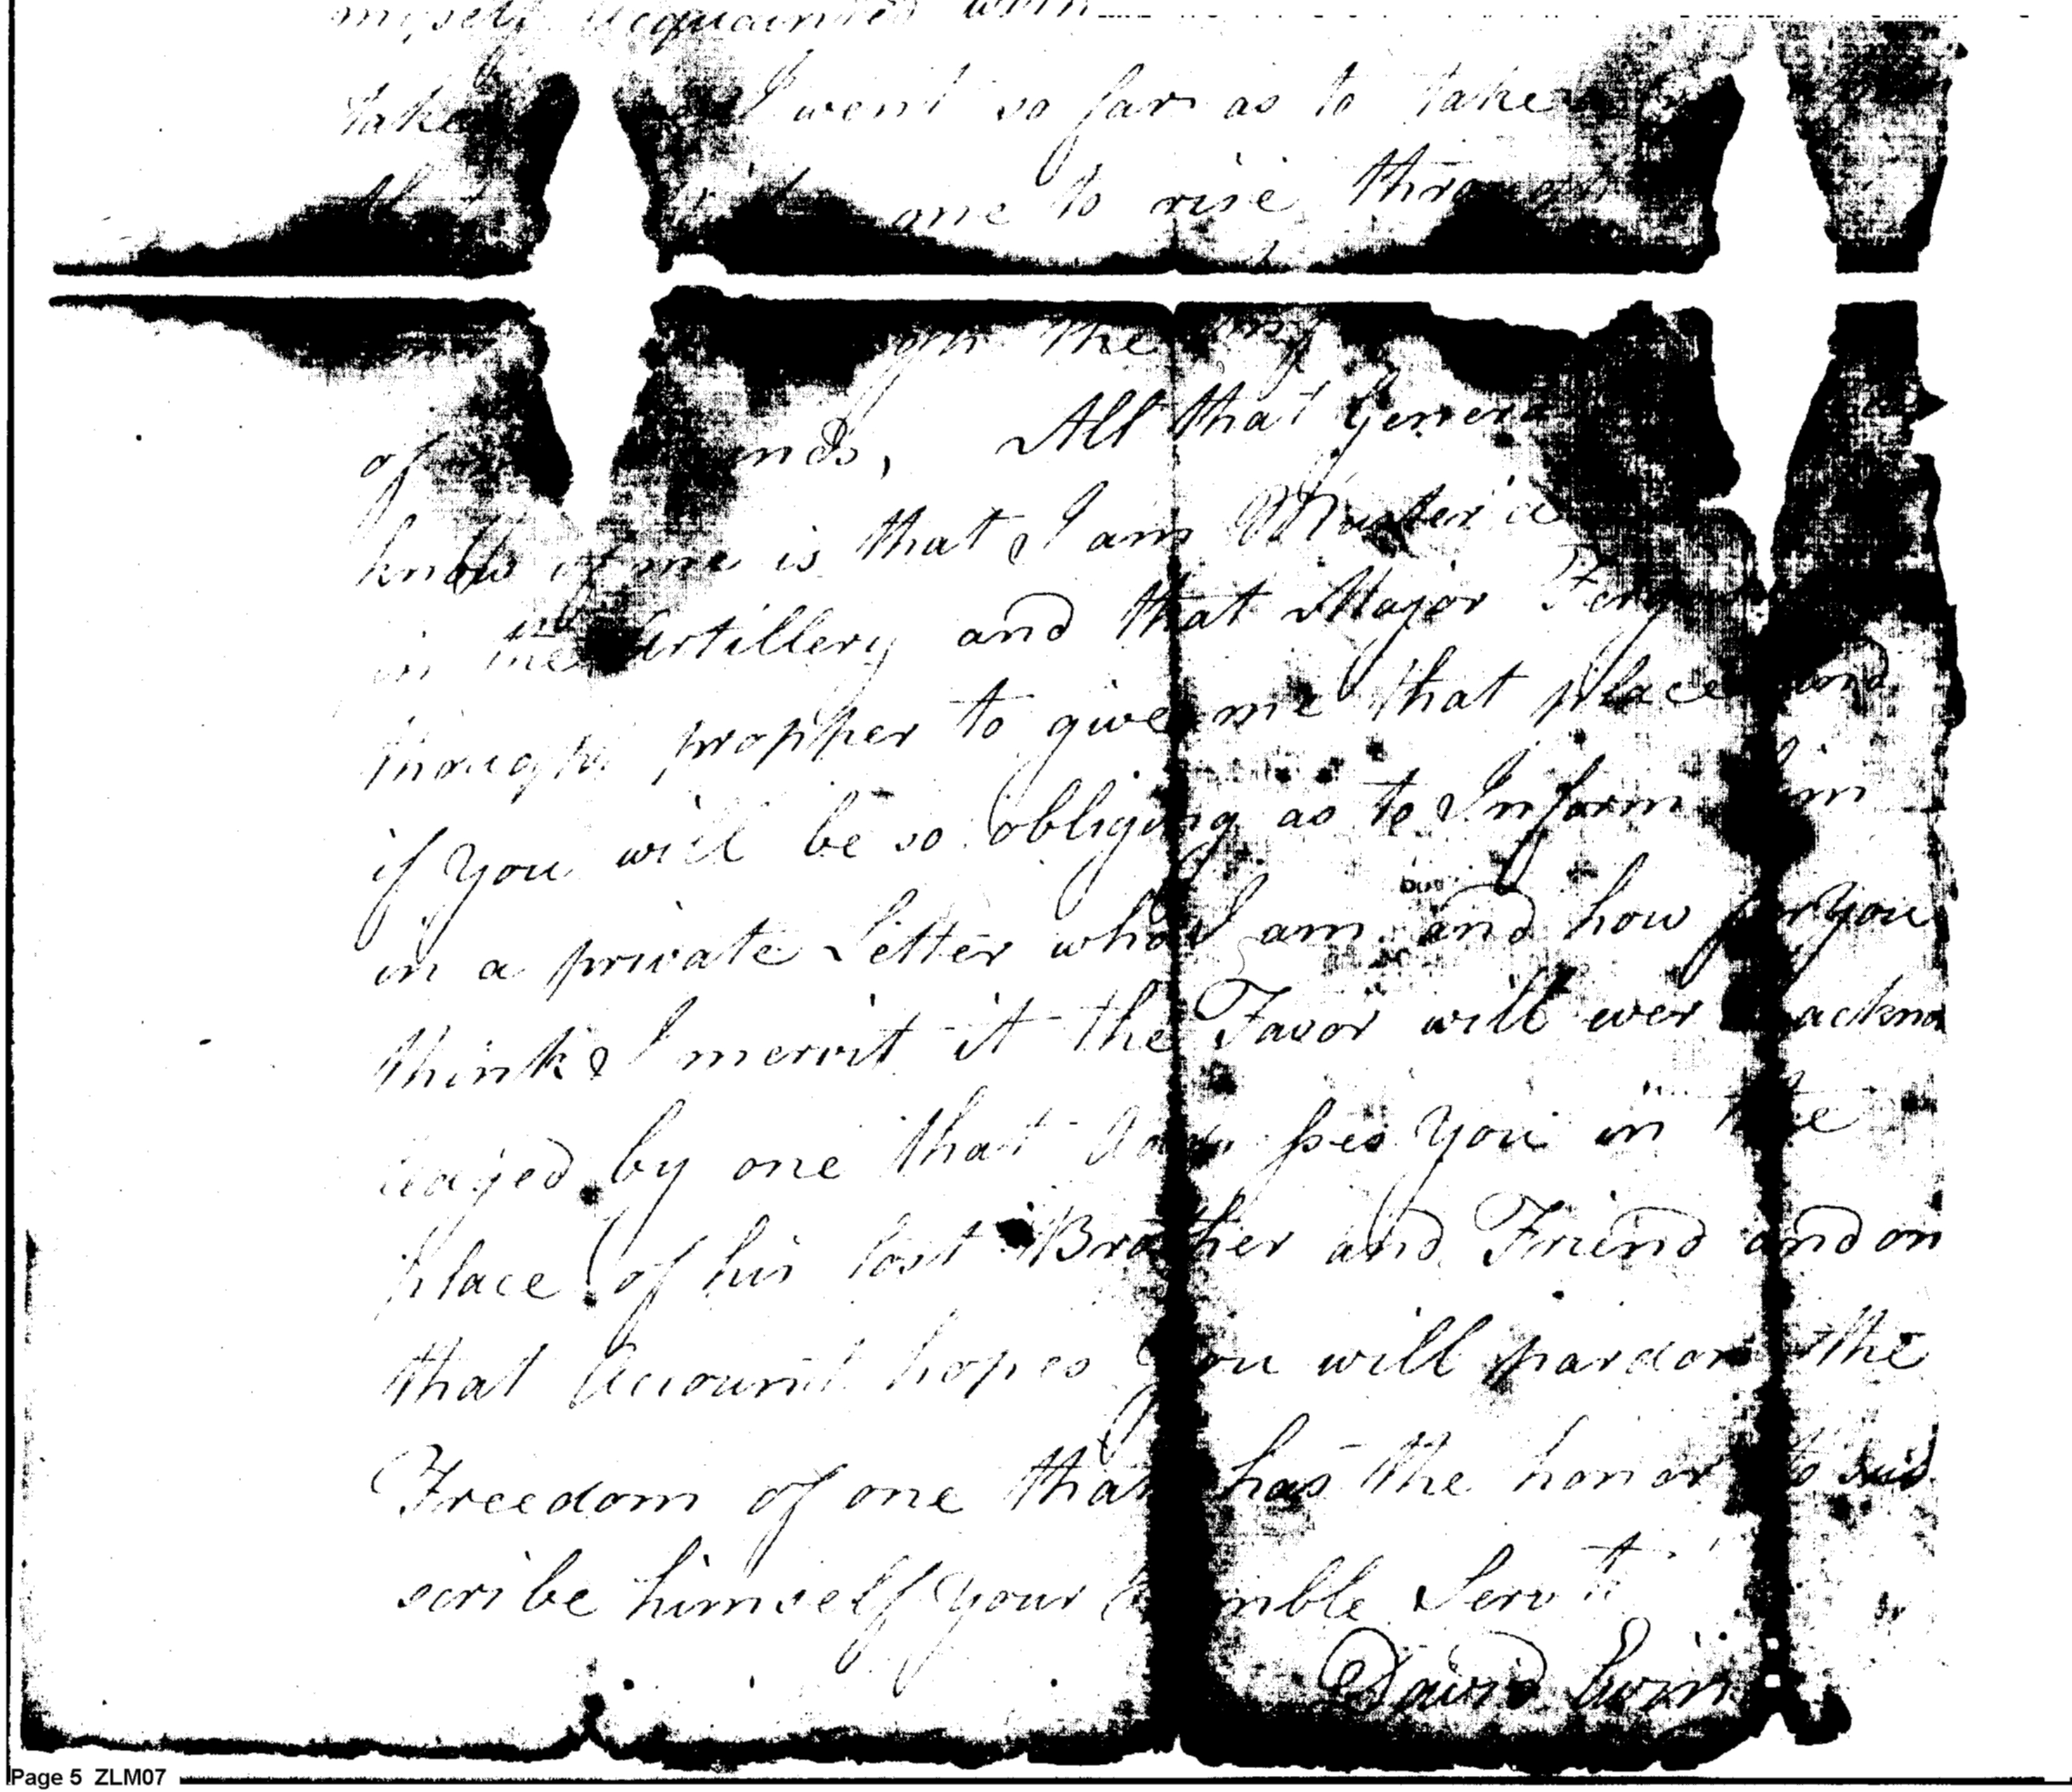 myself acquainted with
take I went so far as to take
that one to rise through
the
of nds, All that Genera
know of me is that I am Muster'd
in the Artillery and that Major Ferg
thought propper to give me that place and
if you will be so obliging as to Inform him
in a private Letter who I am and how far you
think I merrit it the Favor will ever ackno
ledged by one that you in the
place of his lost Brother and Friend and on
that Account hopes you will pardon the
Freedom of one that has the honor to sub
scribe himself your humble Servt
David
Page 5 ZLM07